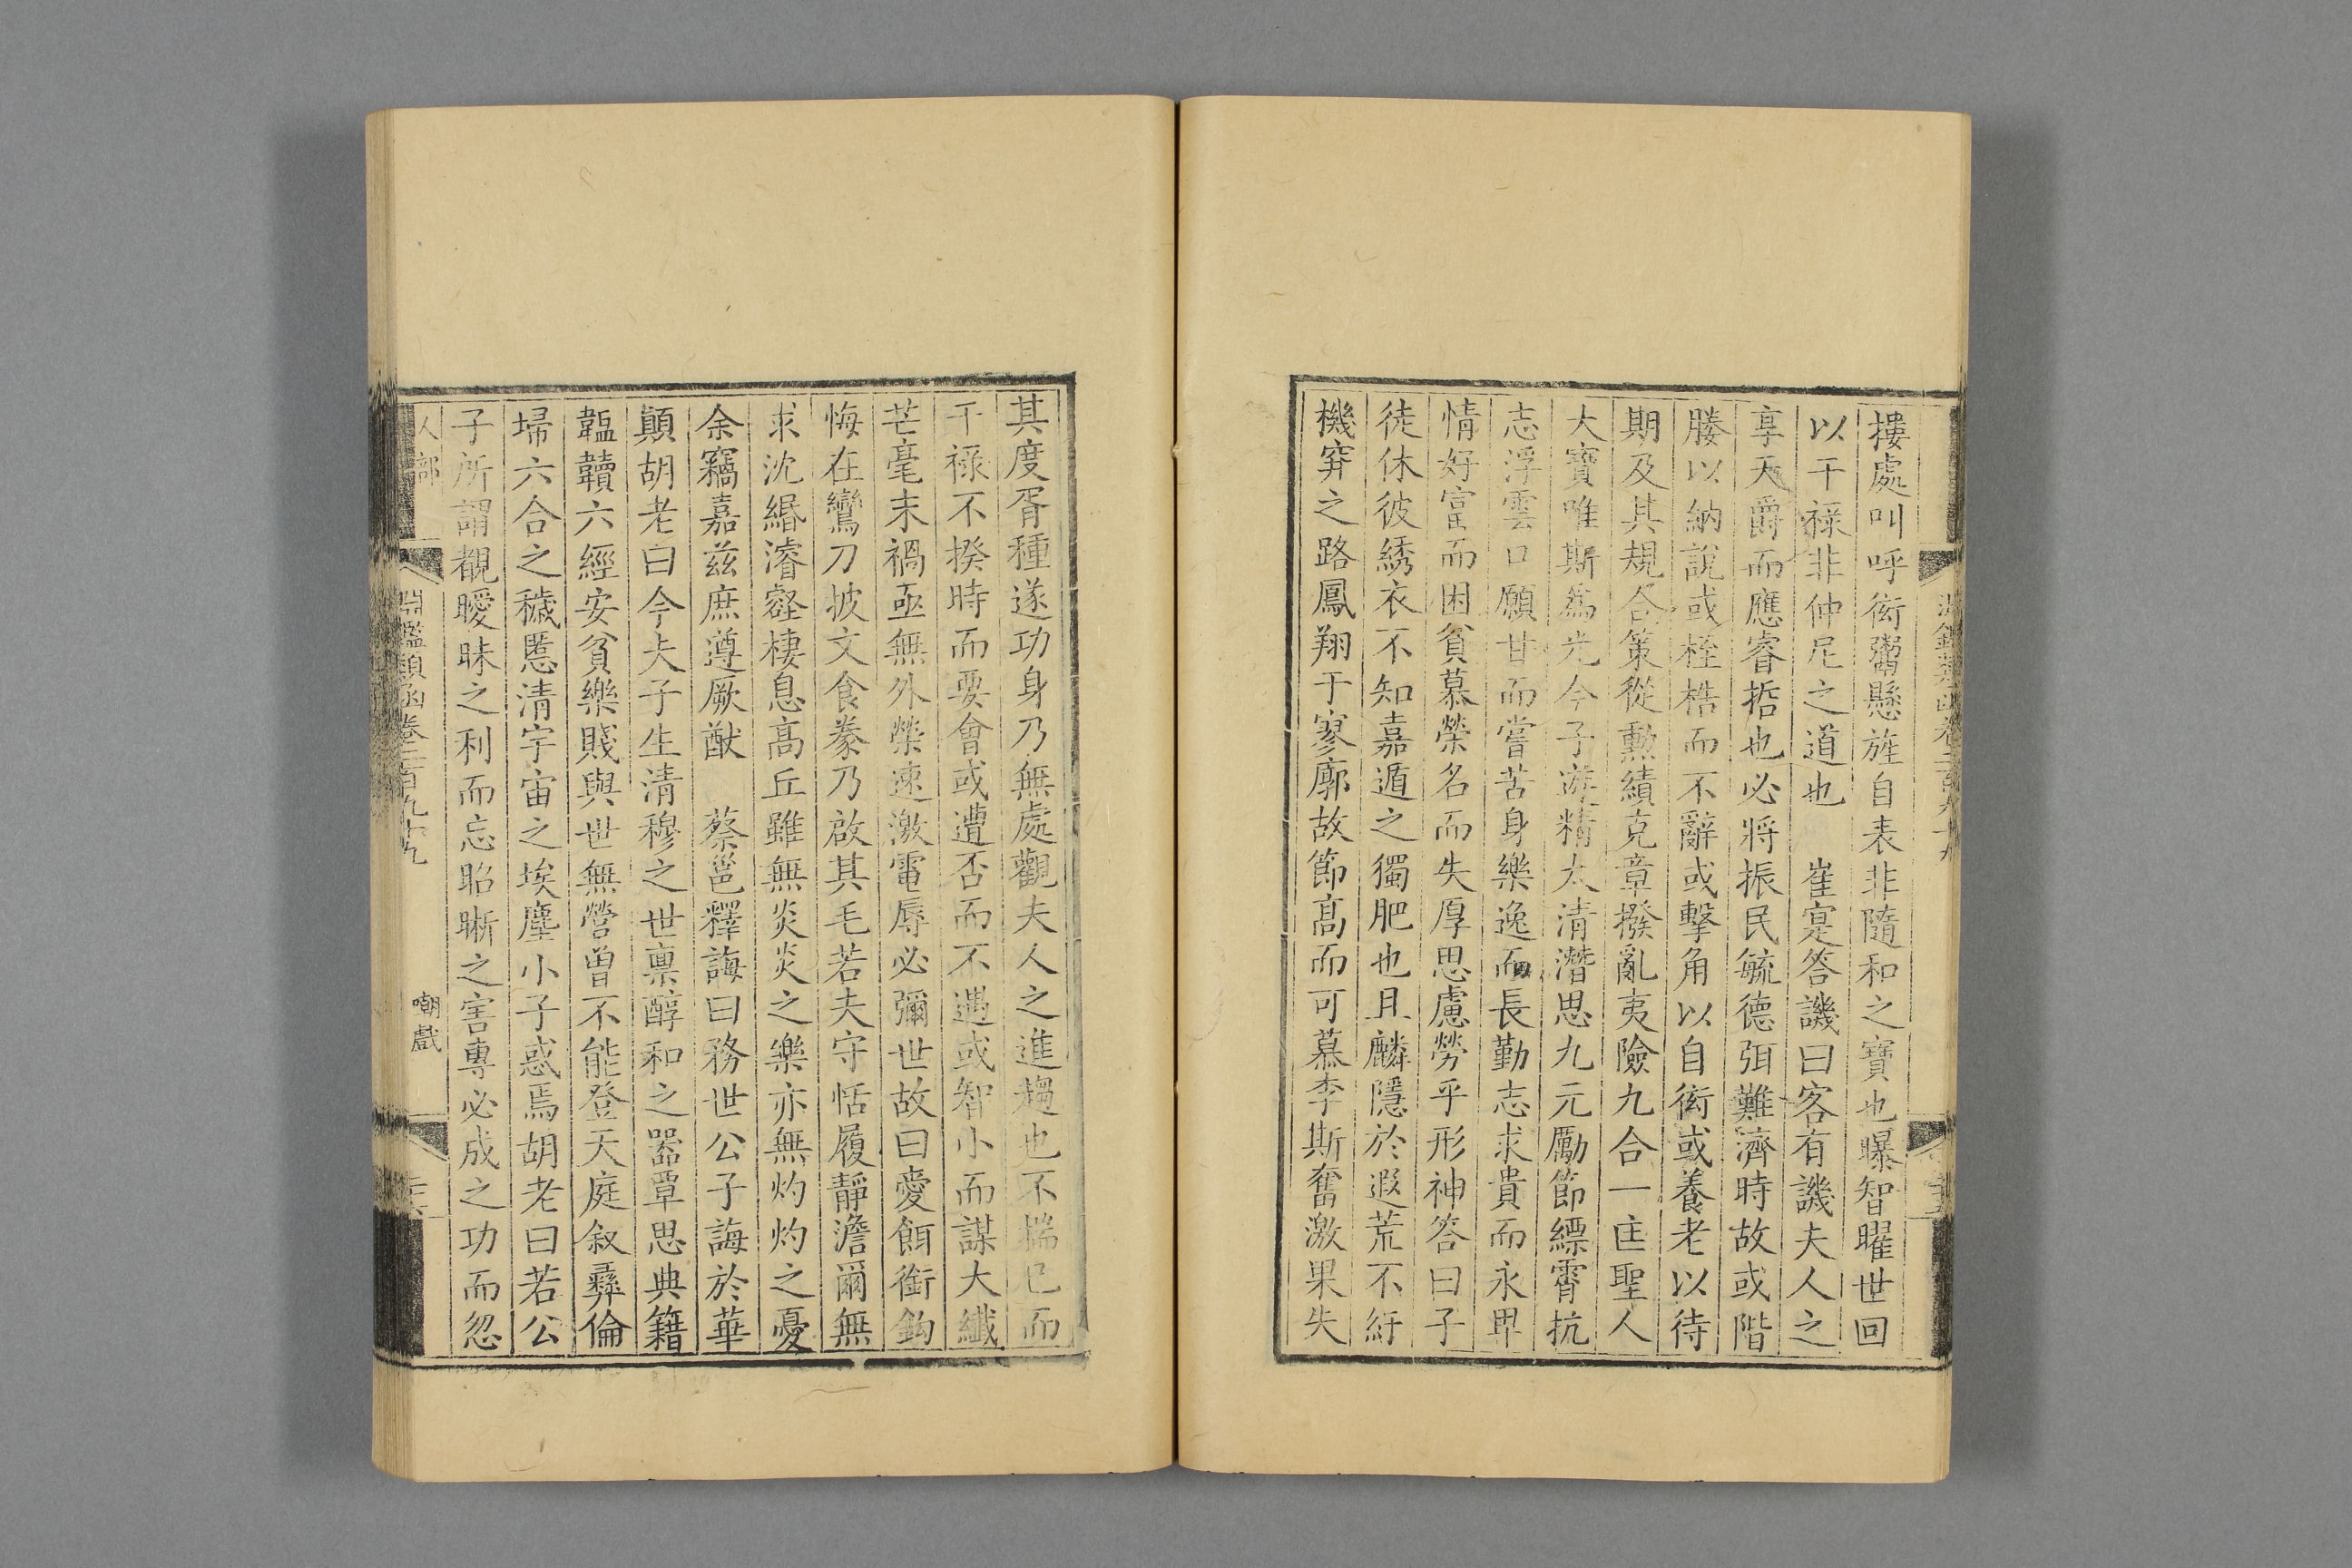 摟處叫呼衒鬻懸旌自表非隨和之寶也曝智曜世回
以干祿非仲尼之道也　崔寔答譏曰客有譏夫人之
享天爵而應睿哲也必將振民毓德弭難濟時故或階
媵以納說或桎梏而不辭或擊角以自衒或養老以待
期及其規合策從勳績克章撥亂夷險九合一匡聖人
大寶唯斯為光今子遊精太清潛思九元勵節縹霄抗
志浮雲口願甘而嘗苦身樂逸而長勤志求貴而永卑
情好富而困貧慕榮名而失厚思慮勞乎形神答曰子
徒休彼綉衣不知嘉遁之獨肥也且麟隱於遐荒不紆
機穽之路鳳翔于寥廓故節高而可慕李斯奮激果失
其度胥種遂功身乃無處觀夫人之進趨也不揣己而
干祿不揆時而要會或遭否而不遇或智小而謀大纖
芒毫末禍亟無外榮速激電辱必彌世故曰愛餌銜鉤
悔在鸞刀披文食豢乃啟其毛若夫守恬履靜澹爾無
求沈緡濬壑棲息高丘雖無炎炎之樂亦無灼灼之憂
余竊嘉茲庶遵厥猷　蔡邕釋誨曰務世公子誨於華
顛胡老曰今夫子生清穆之世稟醇和之器覃思典籍
韞韥六經安貧樂賤與世無營曾不能登天庭敘彝倫
埽六合之穢慝清宇宙之埃塵小子惑焉胡老曰若公
子所謂覩曖昧之利而忘昭晰之害專必成之功而忽
人部
淵鑑類函卷二百九十九
嘲戲